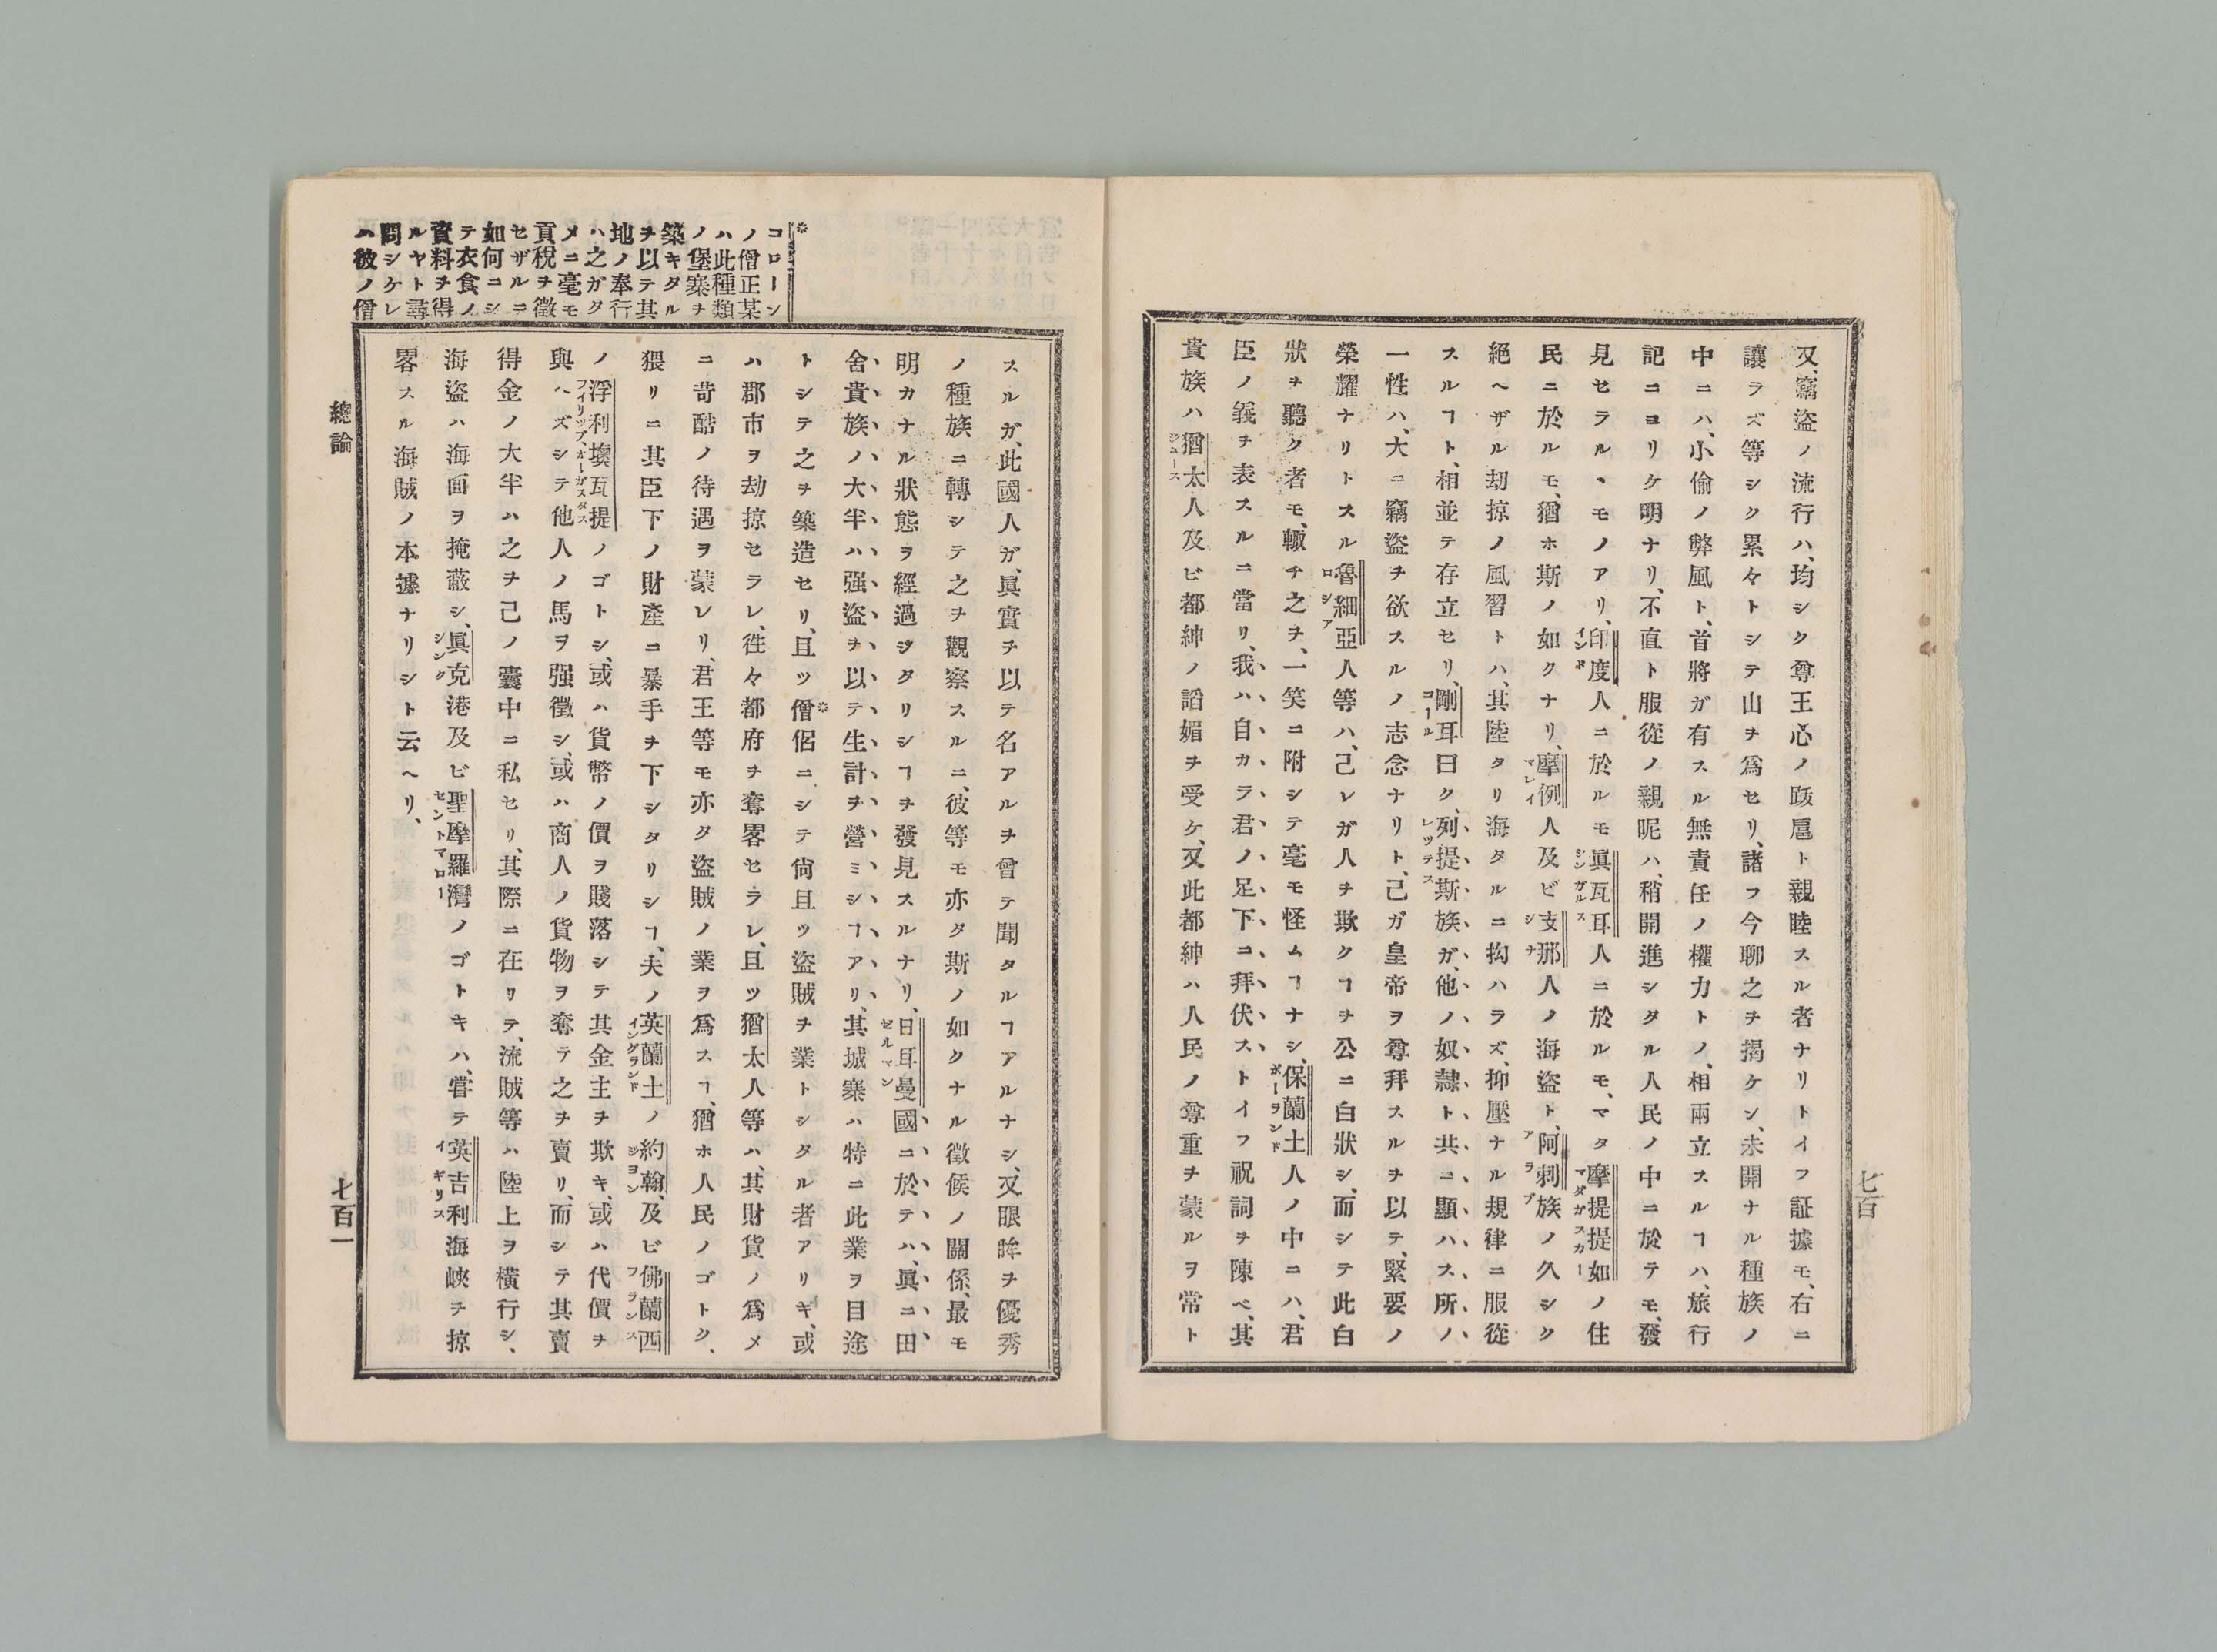 七百
又、竊盜ノ流行ハ、均シク尊王心ノ跋扈ト親睦スル者ナリトイフ証據モ、右ニ
讓ラズ等シク累々トシテ山ヲ爲セリ、諸フ今聊之ヲ揭ケン、未開ナル種族ノ
中ニハ、小偷ノ弊風ト、首將ガ有スル無責任ノ權力トノ、相兩立スルヿハ、旅行
記ニヨリケ明ナリ、不直ト服從ノ親呢ハ、稍開進シタル人民ノ中ニ於テモ、發
見セラルヽモノアリ、印度人ニ於ルモ眞瓦耳人ニ於ルモ、マタ摩提提如ノ住
インド シンガルス マダガスカー
民ニ於ルモ、猶ホ斯ノ如クナリ、摩例人及ビ支那人ノ海盜ト、阿剌族ノ久シク
マレイ シナ アラブ
絕ヘザル劫掠ノ風習トハ、其陸タリ海タルニ抅ハラズ、抑壓ナル規律ニ服從
スルヿト、相並テ存立セリ、剛耳曰ク、列提斯族ガ、他ノ奴隷ト共ニ顯ハス所ノ
コール レツテス
一性ハ、大ニ竊盜ヲ欲スルノ志念ナリト、己ガ皇帝ヲ尊拜スルヲ以テ、緊要ノ
榮耀ナリトスル魯細亞人等ハ、己レガ人ヲ欺クヿヲ公ニ白狀シ、而シテ此白
ロシア
狀ヲ聽ク者モ、輙チ之ヲ、一笑ニ附シテ毫モ怪ムヿナシ、保蘭土人ノ中ニハ、君
ポーランド
臣ノ義ヲ表スルニ當リ、我ハ自カラ君ノ足下ニ拜伏ストイフ祝詞ヲ陳ベ、其
貴族ハ猶太人及ビ都紳ノ謟媚ヲ受ケ、又此都紳ハ人民ノ尊重ヲ蒙ルヲ常ト
ジユース
※コローン
ノ僧正某
ハ此種類
ノ堡寨ヲ
築キタル
ヲ以テ其
地ノ奉行
ハ之ガタ
メニ毫モ
貢稅ヲ徵
セザルニ
如何ニシ
テ衣食ノ
資料ヲ得
ルヤト尋
問シケレ
ハ彼ノ僧
スルガ、此國人ガ、眞實ヲ以テ名アルヲ曾テ聞タルヿアルナシ、又眼眸ヲ優秀
ノ種族ニ轉シテ之ヲ觀察スルニ、彼等モ亦タ斯ノ如クナル徵候ノ關係、最モ
明カナル狀態ヲ經過シタリシヿヲ發見スルナリ、日耳曼國ニ於テハ、眞ニ田
ゼルマン
舍貴族ノ大半ハ强盜ヲ以テ生計ヲ營ミシヿアリ、其城寨ハ特ニ此業ヲ目途
トシテ之ヲ築造セリ、且ツ僧侶ニシテ尙且ツ盜賊ヲ業トシタル者アリキ、或
※
ハ郡市ヲ劫掠セラレ、徃々都府ヲ奪畧セラレ、且ツ猶太人等ハ、其財貨ノ爲メ
ニ苛酷ノ待遇ヲ蒙レリ、君王等モ亦タ盜賊ノ業ヲ爲スヿ、猶ホ人民ノゴトク、
猥リニ其臣下ノ財產ニ暴手ヲ下シタリシヿ、夫ノ英蘭土ノ約翰、及ビ佛蘭西
イングランド ジヨン フランス
ノ浮利堧瓦提ノゴトシ、或ハ貨幣ノ價ヲ賤落シテ其金主ヲ欺キ、或ハ代價ヲ
フイリツプ、オーガスタス
與ヘズシテ他人ノ馬ヲ强徵シ、或ハ商人ノ貨物ヲ奪テ之ヲ賣リ、而シテ其賣
得金ノ大半ハ之ヲ己ノ囊中ニ私セリ、其際ニ在リテ、流賊等ハ陸上ヲ橫行シ、
海盜ハ海面ヲ掩蔽シ、眞克港及ビ聖摩羅灣ノゴトキハ、嘗テ英吉利海峽ヲ掠
シンク セントマロー イギリス
畧スル海賊ノ本據ナリシト云ヘリ、
總論
七百一